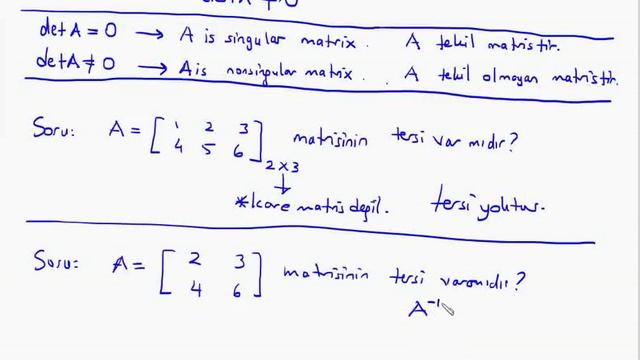 detA ≠ 0
detA = 0 → A is singular matrix. A tekil matristir.
detA ≠ 0 → A is nonsingular matrix. A tekil olmayan matristir.
Soru: A = [ 1 2 3 matrisinin tersi var mıdır?
4 5 6 ] 2x3
*kare matris değil. tersi yoktur.
Soru: A = [ 2 3 matrisinin tersi varmıdır?
4 6 ]
A⁻¹